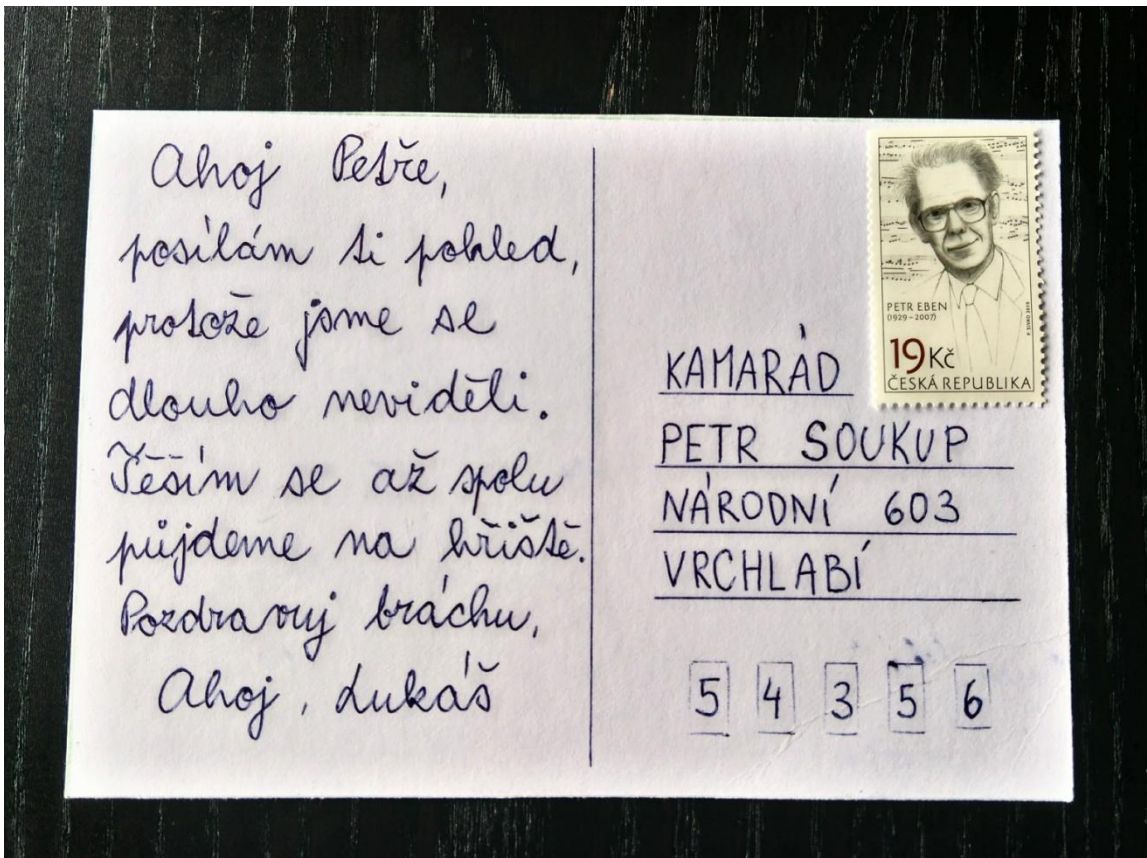 Ahoj Petře,
posílám ti pohled,
protože jsme se
dlouho neviděli.
Těším se až spolu
půjdeme na hřiště.
Pozdravuj bráchu,
Ahoj, Lukáš
PETR EBEN
(1929–2007)
19 Kč
ČESKÁ REPUBLIKA
KAMARÁD
PETR SOUKUP
NÁRODNÍ 603
VRCHLABÍ
5 4 3 5 6